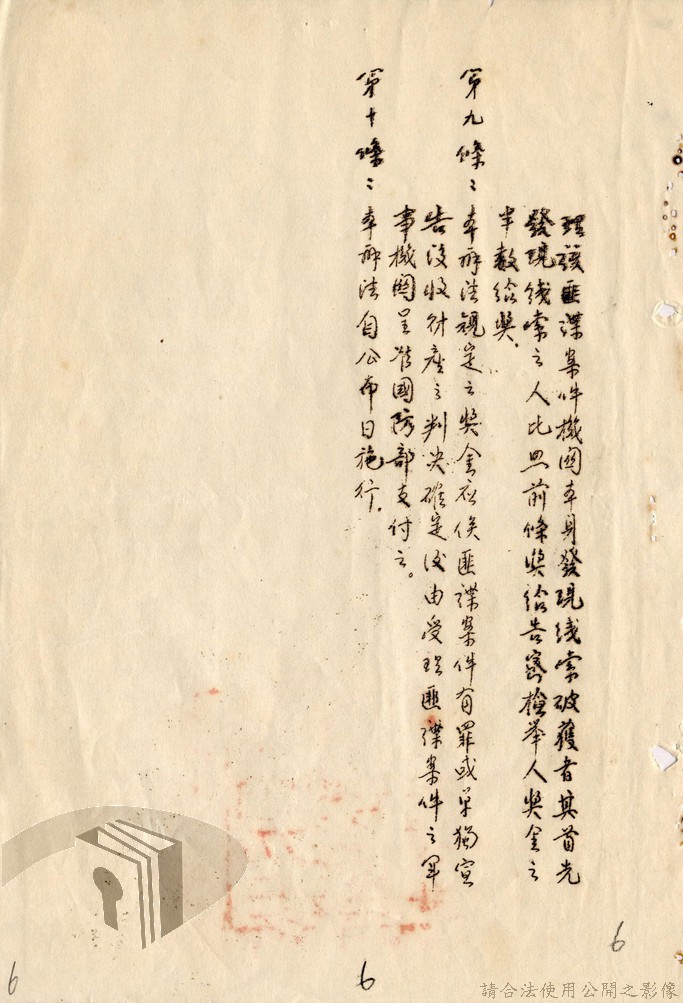 理發匪諜案件機關本身發現线索破獲者其首先
發現线索之人比照前條獎給告密檢舉人獎金之
半數給獎.
第九條：本辦法規定之獎金應俟匪諜案件有罪或單獨宣
告沒收財產之判決確定後由受理匪諜案件之軍
事機關呈准國防部支付之。
第十條：本辦法自公布日施行.
6
6
6
請合法使用公開之影像